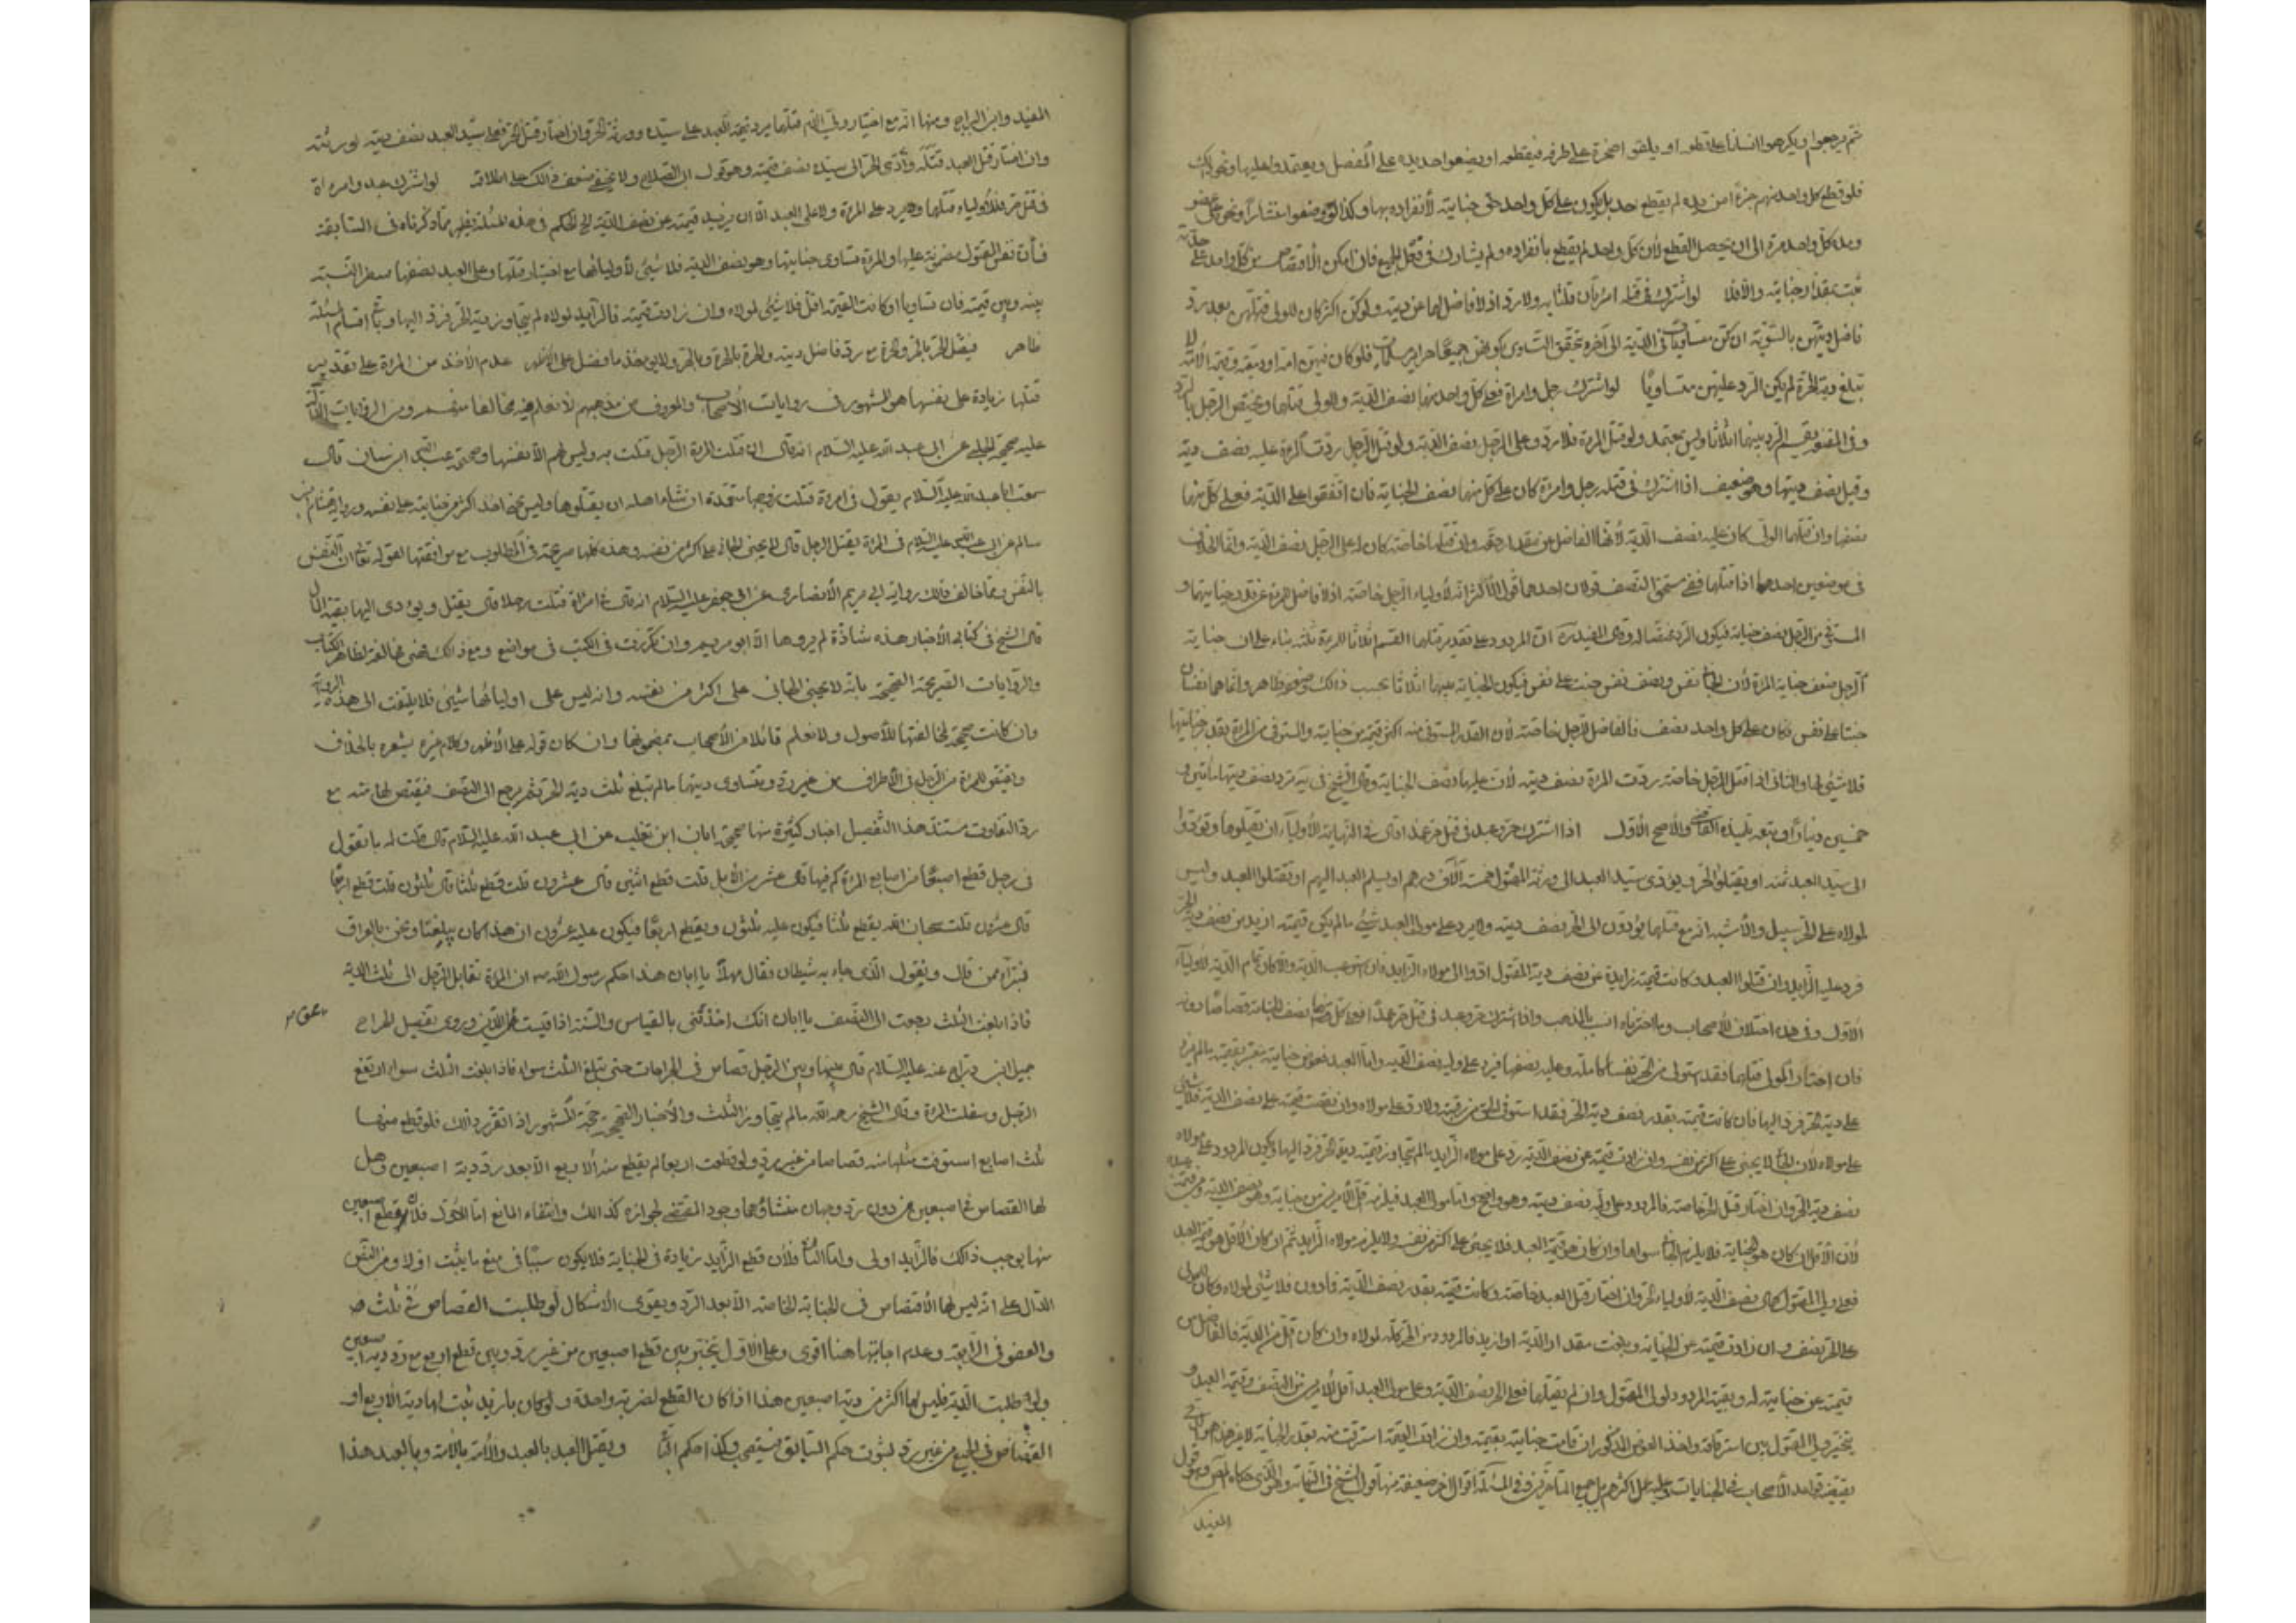 ثم يرجعوا ويكرهوا انسانا على قطعه او يلقوا صخرة على طرفه فيقطعه او يضعوا حديدة على المفصل ويعتمدوا عليها ونحو ذلك
فلو قطع كل واحد منهم جزءا من يده لم يقطع يد بل يكون على كل واحد حق جنايته لانفراده بها وكذا لو وضعوا منشارا ونحوه على عضو
ومده كل واحد مرة الى ان يحصل القطع لان كل واحد لم يقطع بانفراده ولم يشارك في قطع الجميع فان امكن الاقتصاص من كل واحد على حدته
ثبت بمقدار جنايته والا فلا لو اشترك في قتله امرأتان قتلتا به ولا رد اذ لا فاضل لهما عن ديته ولو كن اكثر كان للولي قتلهن بعد رد
فاضل ديتهن بالسوية ان كن متساويات في الدية الى آخره تحقق التساوي بكونهن جميعا حراير مسلمات فلو كان فيهن امة او ذمية وقيمة الامة لا
تبلغ دية الحرة لم يكن الرد عليهن متساويا لو اشترك رجل وامراة فعلى كل واحد منهما نصف الدية وللولي قتلهما ويختص الرجل بالرد
وفي المقنعة يقسم الرد بينهما اثلاثا وليس بمعتمد ولو قتل المرءة فلا رد وعلى الرجل نصف الدية ولو قتل الرجل ردت المرءة عليه نصف ديته
وقيل نصف ديتها وهو ضعيف اذا اشترك في قتله رجل وامرءة كان على كل منهما نصف الجناية فان اتفقوا على الدية فعلى كل منهما
نصفها وان قتلهما الولي كان عليه نصف الدية لانها الفاضل عن مقدار حقه وان قتلها خاصة كان له على الرجل نصف الدية وانما الخلاف
في موضعين احدهما اذا قتلهما ففي مستحق النصف قولان احدهما قول الاكثر انه لاولياء الرجل خاصة اذ لا فاضل للمرءة عن قدر جنايتها و
المستوفى من الرجل ضعف جنايته فيكون الرد مختصا له وقال المفيد ره ان المردود على تقدير قتلهما يقسم اثلاثا للمرءة ثلثه بناء على ان جناية
الرجل ضعف جناية المرءة لان الجاني نفس ونصف نفس جنت على نفس فيكون الجناية بينهما اثلاثا بحسب ذلك وضعفه ظاهر وانما هما نفسان
جنتا على نفس فكان على كل واحد نصف فالفاضل للرجل خاصة لان القدر المستوفى منه اكثر قيمة من جنايته والمستوفى من المرءة بقدر جنايتها
فلا شيئ لها والثاني اذا قتل الرجل خاصة ردت المرءة نصف ديته لان عليها نصف الجناية وقال الشيخ في يه ترد نصف ديتها مأتين و
خمسين دينارا وتبعه تلميذه القاضي والاصح الاول اذا اشترك حر وعبد في قتل حر عمدا قال في النهاية للاولياء ان يقتلوهما ويؤدوا
الى سيد العبد ثمنه او يقتلوا الحر ويؤدي سيد العبد الى ورثة المقتول خمسة آلاف درهم او يسلم العبد اليهم او يقتلوا العبد وليس
لمولاه على الحر سبيل والاشبه انه مع قتلهما يؤدون الى الحر نصف ديته ولا يرد على مولى العبد شيئ ما لم يكن قيمته ازيد من نصف دية الحر
فرد عليه الزايد وان قتلوا العبد وكانت قيمته زايدة عن نصف دية المقتول ادوا الى مولاه الزايد فان استوعب الدية والا كان تمام الدية لاولياء
الاول وفي هذه اختلاف للاصحاب وما اخترناه انسب بالمذهب واذا اشترك حر وعبد في قتل حر عمدا فعلى كل منهما نصف الجناية قصاصا ودية
فان اختار الولي قتلهما فقد استوفى من الحر نفسا كاملة وعليه نصفها فيرد على وليه نصف الدية واما العبد فعوض جنايته يعتبر بقيمته ما لم يزد
على دية الحر فرد اليها فان كانت قيمته بقدر نصف دية الحر فقد استوفى الحق من رقبته ولا رد على مولاه وان نقصت قيمته على نصف الدية فلا شيئ
على مولاه لان الجاني لا يجني على اكثر من نفسه وان زادت قيمته عن نصف الدية رد على مولاه الزايد ما لم يتجاوز قيمته دية الحر فرد اليها ويكون المردود على مولاه
نصف دية الحر وان اختار قتل الحر خاصة فالمردود على وليه نصف ديته وهو واضح واما مولى العبد فيلزمه اقل الامرين من جنايته وهو نصف الدية ومن قيمة عبده
لان الاقل ان كان هو الجناية فلا يلزم الجاني سواها وان كان هو قيمة العبد فلا يجني على اكثر من نفسه ولا يلزم مولاه الزايد ثم ان كان الاقل هو قيمة العبد
فعلى ولي المقتول كمال نصف الدية لاولياء الحر وان اختار قتل العبد خاصة وكانت قيمته بقدر نصف الدية فما دون فلا شيئ لمولاه وكان للولي
على الحر نصف وان زادت قيمته عن الجناية وبلغت مقدار الدية او ازيد فالمردود من الحر كله لمولاه وان كان اقل من الدية فالفاضل من
قيمته عن جنايته له وبقية المردود لولي المقتول وان لم يقتلهما فعلى الحر نصف الدية وعلى مولى العبد اقل الامرين من النصف وقيمة العبد و
يتخير ولي المقتول بين استرقاقه واخذ العوض المذكور ان قامت جنايته بقيمته وان زادت القيمة استرقت منه بقدر الجناية لا غير هذا هو الذي
يقتضيه قواعد الاصحاب في الجنايات وعليه عمل اكثرهم بل جميع المتاخرين وفي المسئلة اقوال اخر ضعيفة منها قول الشيخ في النهاية وهو الذي حكاه المص وهو قول
المفيد
المفيد وابن البراج ومنها انه مع اختيار ولي الدم قتلهما يرد قيمة العبد على سيده وورثة الحر وان اختار قتل الحر فعلى سيد العبد نصف ديته لورثته
وان اختار قتل العبد قتله وادى الحر الى سيده نصف قيمته وهو قول ابي الصلاح ولا يخفى ضعف ذلك على اطلاقه لو اشترك عبد وامرءة
في قتل حر فللاولياء قتلهما ولا يرد على المرءة ولا على العبد الا ان يزيد قيمته عن نصف الدية الخ الحكم في هذه المسئلة يظهر مما ذكرناه في السابقة
فان نفس المقتول مضمونة عليهما والمرءة تساوي جنايتها وهو نصف الدية فلا شيئ لاوليائها مع اختيار قتلها وعلى العبد نصفها معتبر النسبة
بينه وبين قيمته فان تساويا او كانت القيمة اقل فلا شيئ لمولاه وان زادت قيمته فالزايد لمولاه ما لم يتجاوز دية الحر فرد اليها وباقي اقسام المسئلة
ظاهر فيقتل الحر بالحر وبالحرة مع رد فاضل ديته والحرة بالحرة وبالحر ولا يؤخذ ما فضل على الاظهر عدم الاخذ من المرءة على تقدير
قتلها زيادة على نفسها هو المشهور في روايات الاصحاب والمعروف من مذهبهم لا نعلم فيه مخالفا منهم ومن الروايات الدالة
عليه صحيحة الحلبي عن ابي عبد الله عليه السلام انه قال ان قتلت المرءة الرجل قتلت به وليس لهم الا نفسها وصحيحة عبد الله ابن سنان قال
سمعت ابا عبد الله عليه السلام يقول في امرءة قتلت زوجها متعمدة ان شاء اهله ان يقتلوها وليس يجني احد اكثر من جنايته على نفسه ورواية هشام بن
سالم عن ابي عبد الله عليه السلام في المرءة يقتل الرجل قال لا يجني الجاني على اكثر من نفسه وهذه كلها صريحة في المطلوب مع موافقتها لقوله تعالى ان النفس
بالنفس ومما خالف ذلك رواية ابي مريم الانصاري عن ابي جعفر عليه السلام انه قال في امرأة قتلت رجلا قال يقتل ويؤدى اليها بقية المال
قال الشيخ في كتابي الاخبار هذه شاذة لم يروها الا ابو مريم وان تكررت في الكتب في مواضع ومع ذلك فهي مخالفة لظاهر الكتاب
والروايات الصريحة الصحيحة بانه لا يجني الجاني على اكثر من نفسه وانه ليس على اوليائها شيئ فلا يلتفت الى هذه الرواية
وان كانت صحيحة لمخالفتها للاصول ولا نعلم قائلا من الاصحاب بمضمونها وان كان قوله على الاظهر وكلام غيره يشعر بالخلاف
ويقتص للمرءة من الرجل في الاطراف من غير رد ويتساوى ديتهما ما لم تبلغ ثلث دية الحر ثم يرجع الى النصف فيقتص لها منه مع
رد التفاوت مستند هذا التفصيل اخبار كثيرة منها صحيحة ابان ابن تغلب عن ابي عبد الله عليه السلام قال قلت له ما تقول
في رجل قطع اصبعا من اصابع المرءة كم فيها قال عشر من الابل قلت قطع اثنين قال عشرون قلت قطع ثلثا قال ثلثون قلت قطع اربعا
قال عشرون قلت سبحان الله يقطع ثلثا فيكون عليه ثلثون ويقطع اربعا فيكون عليه عشرون ان هذا كان يبلغنا ونحن بالعراق
فنبرأ ممن قال ونقول الذي جاء به شيطان فقال مهلا يا ابان هذا حكم رسول الله ص ان المرءة تعاقل الرجل الى ثلث الدية
فاذا بلغت الثلث رجعت الى النصف يا ابان انك اخذتني بالقياس والسنة اذا قيست محق الدين وروى تفصيل الجراح
جميل ابن دراج عنه عليه السلام قال بينها وبين الرجل قصاص في الجراحات حتى تبلغ الثلث سواء فاذا بلغت الثلث سواء ارتفع
الرجل وسفلت المرءة وقال الشيخ رحمه الله ما لم يتجاوز الثلث والاخبار الصحيحة حجة المشهور اذا تقرر ذلك فلو قطع منها
ثلث اصابع استوفت مثلها منه قصاصا من غير رد ولو قطعت اربعا لم يقطع منه الاربع الا بعد رد دية اصبعين وهل
لها القصاص في اصبعين من دون رد وجهان منشاؤهما وجود المقتضي لجوازه كذلك وانتفاء المانع اما الاول فلان قطع اصبعين
منها يوجب ذلك فالزايد اولى واما الثاني فلان قطع الزايد زيادة في الجناية فلا يكون سببا في منع ما يثبت اولا ومن النص
الدال على انه ليس لها الاقتصاص في الجناية الخاصة الا بعد الرد ويقوى الاشكال لو طلبت القصاص في ثلث
والعفو في الرابعة وعدم اجابتها هنا اقوى وعلى الاول يتخير بين قطع اصبعين من غير رد وبين قطع اربع مع رد دية اصبعين
ولو طلبت الدية فليس لها اكثر من دية اصبعين هذا اذا كان القطع بضربة واحدة ولو كان بازيد ثبت لها دية الاربع او
القصاص في الجميع من غير رد لثبوت حكم السابق فيستصحب وكذا حكم الباقي ويقتل العبد بالعبد والامة بالامة وبالعبد هذا